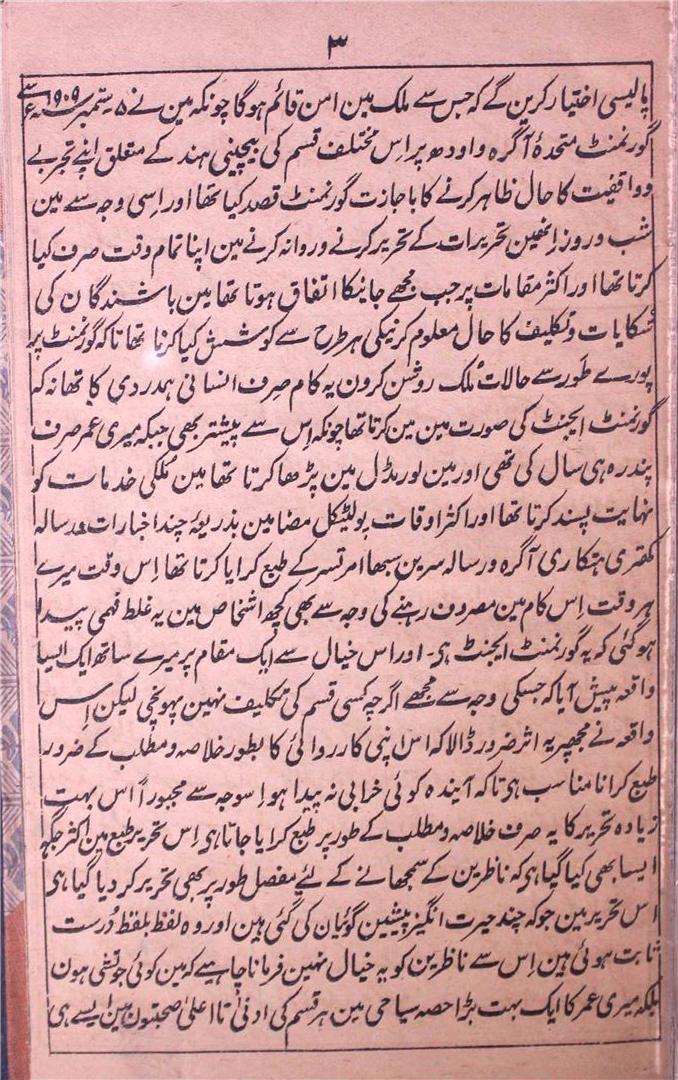 ۳
پالیسی اختیار کرین گے کہ جس سے ملک مین امن قائم ہوگا چونکہ مین نے ۵۔ ستمبر ۱۹۰۹ء سے
گورنمنٹ متحدۂ آگرہ و اودھ پر اِس مختلف قسم کی بیچینی ہند کے متعلق اپنے تجربے
و واقفیت کا حال ظاہر کرنے کا باجازت گورنمنٹ قصد کیا تھا اور اِسی وجہ سے مین
شب و روز اِنھین تحریرات کے تحریر کرنے و روانہ کرنے مین اپنا تمام وقت صرف کیا
کرتا تھا اور اکثر مقامات پر جب مجھے جانیکا اتفاق ہوتا تھا مین باشندگان کی
شکایات و تکلیف کا حال معلوم کرنیکی ہر طرح سے کوشش کیا کرتا تھا تاکہ گورنمنٹ پر
پورے طَور سے حالات ملک روشن کرون یہ کام صِرف انسانی ہمدردی کا تھا نہ کہ
گورنمنٹ ایجنٹ کی صورت مین مین کرتا تھا چونکہ اِس سے پیشتر بھی جبکہ میری عمر صرف
پندرہ ہی سال کی تھی اور مین نورمڈل مین پڑھا کرتا تھا مین ملکی خدمات کو
نہایت پسند کرتا تھا اور اکثر اوقات پولٹیکل مضامین بذریعۂ چند اخبارات و رسالہ
کھتری ہتکاری آگرہ و رسالہ سرین سبھا امرتسر کے طبع کرایا کرتا تھا اِس وقت میرے
ہر وقت اِس کام مین مصروف رہنے کی وجہ سے بھی کچھ اشخاص مین یہ غلط فہمی پیدا
ہو گئی کہ یہ گورنمنٹ ایجنٹ ہی۔ اور اس خیال سے ایک مقام پر میرے ساتھ ایک ایسا
واقعہ پیش آیا کہ جسکی وجہ سے مجھے اگرچہ کسی قسم کی تکلیف نہین پہونچی لیکن اِس
واقعہ نے مجھپر یہ اثر ضرور ڈالا کہ اس اپنی کارروائی کا بطور خلاصہ و مطلب کے ضرور
طبع کرانا مناسب ہی تاکہ آیندہ کوئی خرابی نہ پیدا ہو اِسوجہ سے مجبوراً اس بہت
زیادہ تحریر کا یہ صرف خلاصہ و مطلب کے طور پر طبع کرایا جاتا ہی اِس تحریر طبع مین اکثر جگہ
ایسا بھی کیا گیا ہی کہ ناظرین کے سمجھانے کے لیے مفصل طور پر بھی تحریر کر دیا گیا ہی
اس تحریر مین جو کہ چند حیرت انگیز پیشین گوئیان کی گئی ہین اور وہ لفظ بلفظ دُرست
ثابت ہوئی ہین اِس سے ناظرین کو یہ خیال نہین فرمانا چاہیے کہ مین کوئی جوتشی ہون
بلکہ میری عمر کا ایک بہت بڑا حصہ سیاحی مین ہر قسم کی ادنیٰ تا اعلیٰ صحبتون مین ایسے ہی